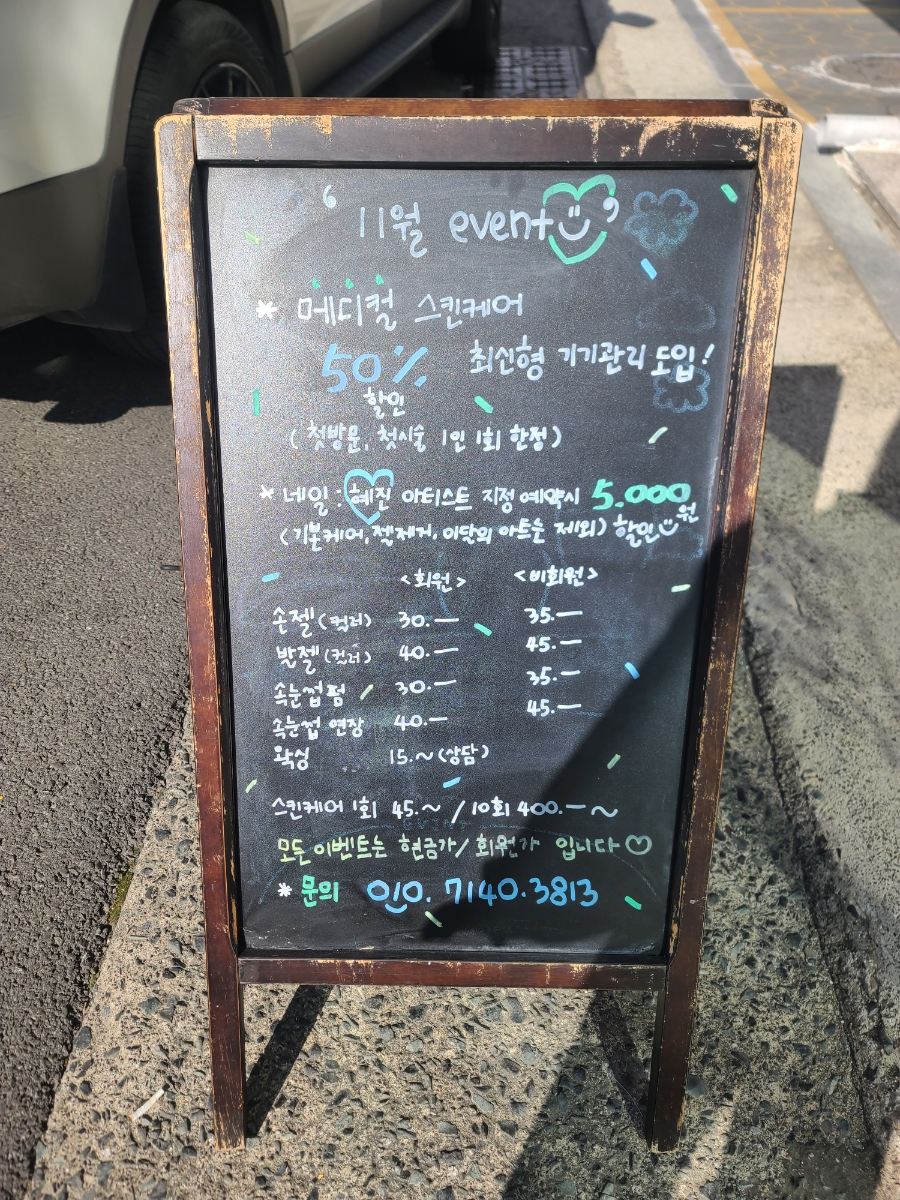 ‘ 11월 event ’
* 메디컬 스킨케어
50% 할인 최신형 기기관리 도입!
( 첫방문, 첫시술 1인 1회 한정)
* 네일 : 혜진 아티스트 지정 예약시 5,000원
(기본케어, 젤제거, 이달의 아트는 제외) 할인
<회원> <비회원>
손젤 (컬러) 30.— 35.—
발젤 (컬러) 40.— 45.—
속눈썹 펌 30.— 35.—
속눈썹 연장 40.— 45.—
왁싱 15.~ (상담)
스킨케어 1회 45.~ / 10회 400.— ~
모든 이벤트는 현금가/ 회원가 입니다♡
* 문의 010. 7140. 3813